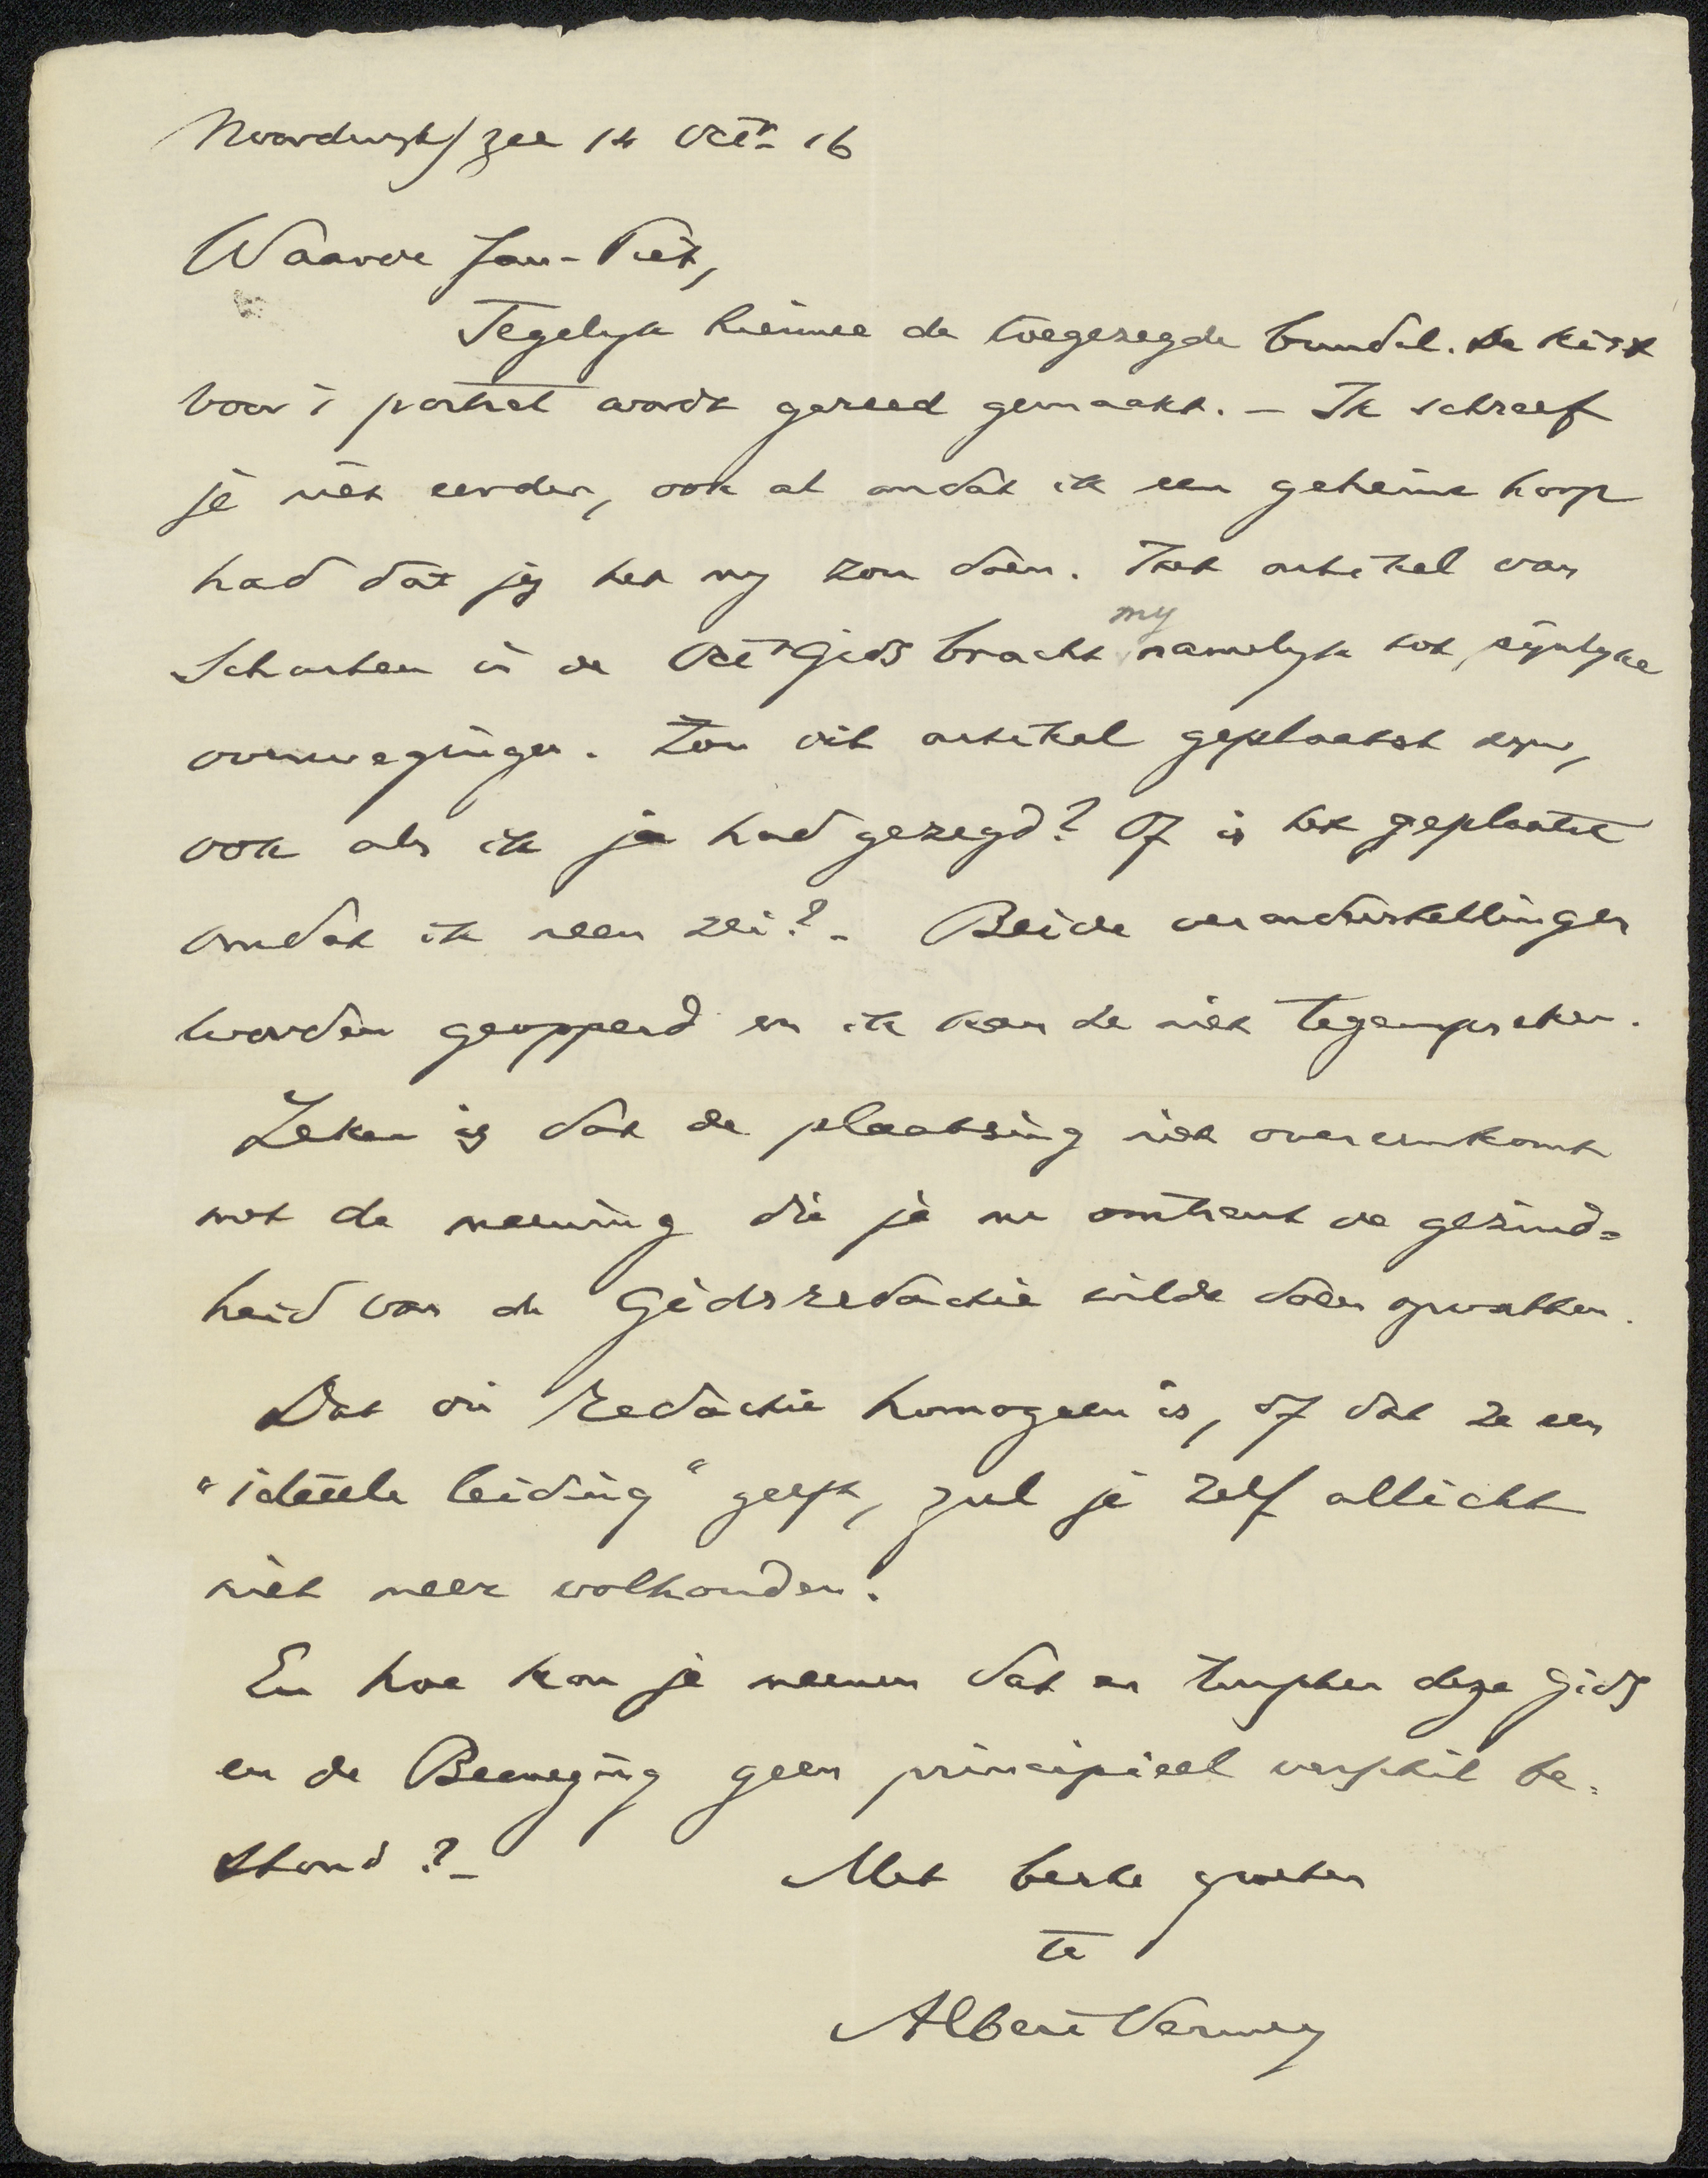 Noordwijk/zee 14 Octr 16
Waarde Jan-Piet,
Tegelyk hiermee de toegezegde bundel. De kist
voor 't portret wordt gereed gemaakt. – Ik schreef
je niet eerder, ook al omdat ik een geheime hoop
had dat jij het my zou doen. Het artikel van
Scharten in de Octr Gids bracht my namelyk tot pynlyke
overwegingen. Zou dit artikel geplaatst zyn,
ook als ik ja had gezegd? Of is het geplaatst
omdat ik neen zei? – Beide veronderstellingen
worden geopperd en ik kan ze niet tegenspreken.
Zeker is dat de plaatsing niet overeenkomt
met de meening die je me omtrent de gezind=
heid van de Gidsredactie wilde doen opvatten.
Dat die redactie homogeen is, of dat ze een
"ideëele leiding" geeft, zul je zelf allicht
niet meer volhouden.
En hoe kon je meenen dat er tusschen deze Gids
en de Beweging geen principieel verschil be=
stond? –
Met beste groeten
te
Albert Verwey